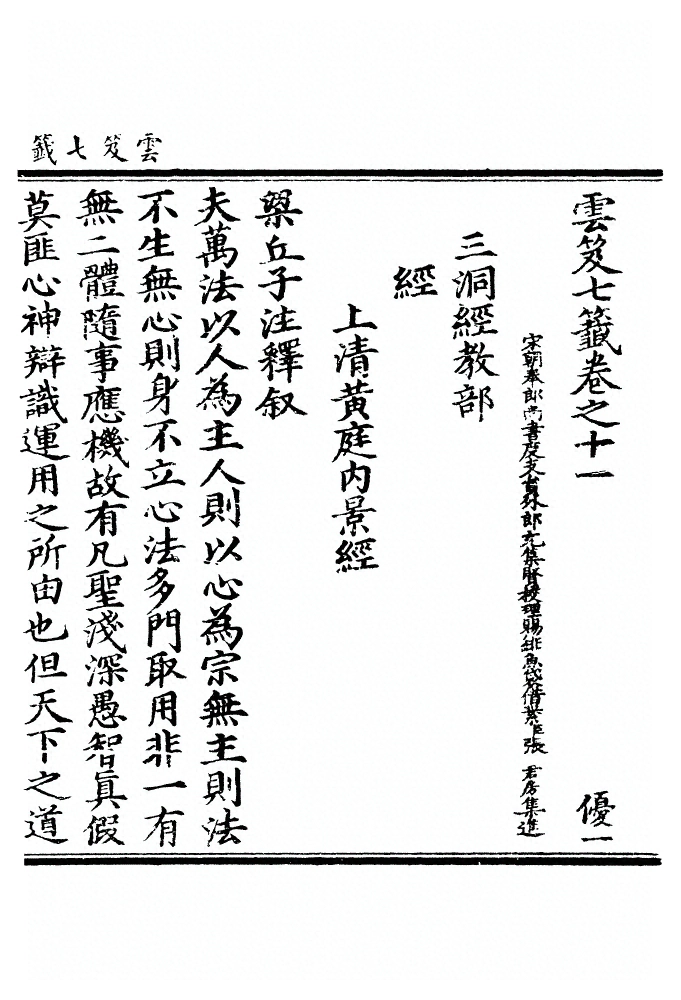 雲笈七籤
雲笈七籤卷之十一　優一
宋朝奉郎尚書度支員外郎充集賢校理賜緋魚袋借紫臣張君房集進
三洞經教部
經
上清黃庭內景經
梁丘子注釋叙
夫萬法以人為主人則以心為宗無主則法
不生無心則身不立心法多門取用非一有
無二體隨事應機故有凡聖淺深愚智真假
莫匪心神辯識運用之所由也但天下之道